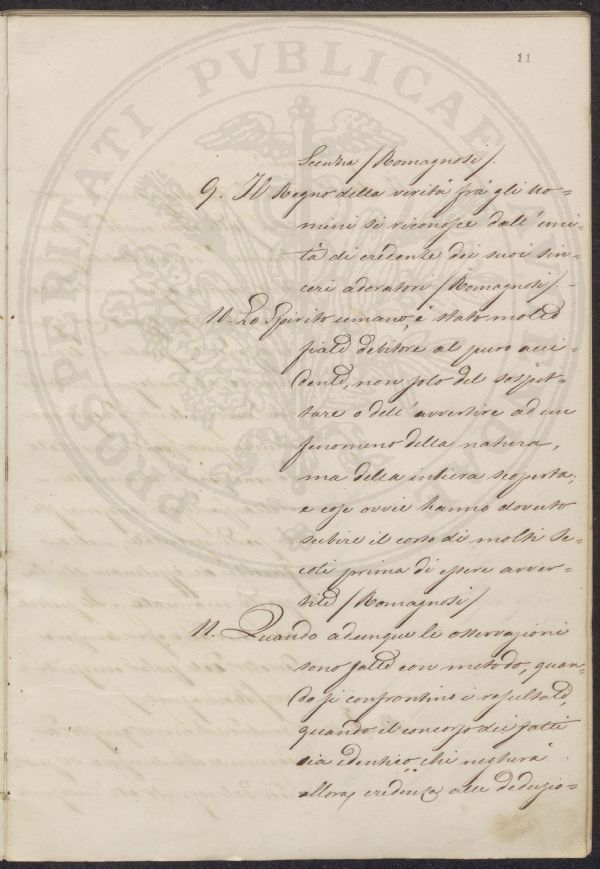 PROSPERITATI PVBLICAE
11
Scenza /Romagnosi/.
9. Il Regno della verità frà gli uo=
mini si riconosce dall'uni=
tà di credenze dei suoi sin=
ceri adoratori /Romagnosi/.
10. Lo Spirito umano, è stato molte
fiate debitore al puro acci=
dente, non solo del sospet=
tare o dell'avvertire ad un
fenomeno della natura,
ma della intiera scoperta;
e cose ovvie hanno dovuto
subire il corso di molti se=
coli prima di essere avver=
tite /Romagnosi/
11. Quando adunque le osservazioni
sono fatte con metodo, quan=
do si confrontino i resultati,
quando il concorso dei fatti
sia identico, chi negherà
allora, credenza alle deduzio=